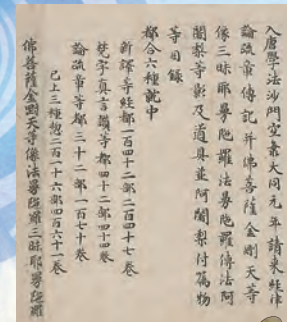 入唐學法沙門空海大同元年請来経律
論疏章傳記并佛菩薩金剛天等
像三昧耶曼陁羅法曼陁羅傳法阿
闍梨等影及道具並阿闍梨付嘱物
等目録
都合六種就中
新譯等経都一百四十二部二百四十七巻
梵字真言讃等都四十二部四十四巻
論疏章等都三十二部一百七十巻
已上三種惣二百一十六部四百六十一巻
佛菩薩金剛天等像法曼陁羅三昧耶曼陁羅